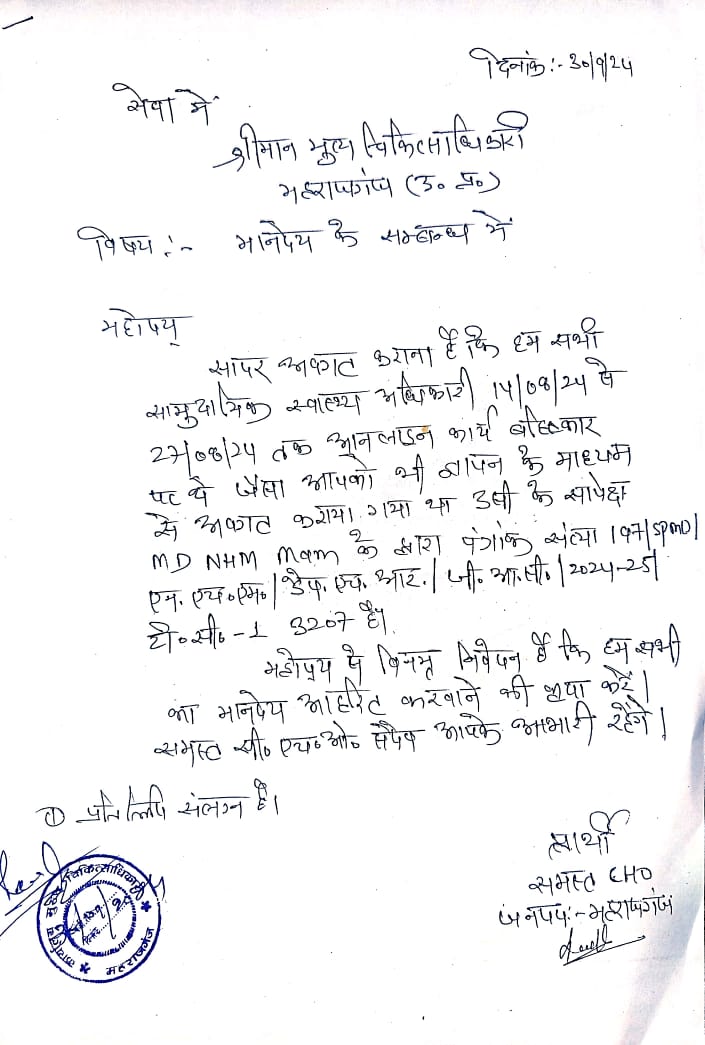 दिनांक:- 30/9/24
सेवा में
श्रीमान मुख्य चिकित्साधिकारी
महराजगंज (उ० प्र०)
विषय:- मानदेय के सम्बन्ध में
महोदय
सादर अवगत कराना है कि हम सभी
सामुदायिक स्वास्थ्य अधिकारी 14/08/24 से
27/08/24 तक आनलाइन कार्य बहिष्कार
पर थे जैसा आपको भी ज्ञापन के माध्यम
से अवगत कराया गया था उसी के सापेक्ष
MD NHM Mam के द्वारा पत्रांक संख्या 197/SPMU/
एन. एच०एम०/डेप. एच. आर./जी. आ.सी०/2024-25/
टी०सी०-1 3207 है।
महोदय से विनम्र निवेदन है कि हम सभी
का मानदेय आहरित करवाने की कृपा करें।
समस्त सी० एच०ओ० सदैव आपके आभारी रहेंगे।
① प्रतिलिपि संलग्न है।
प्रार्थी
समस्त CHO
जनपद:- महराजगंज
कार्यालय मुख्य चिकित्साधिकारी
महराजगंज